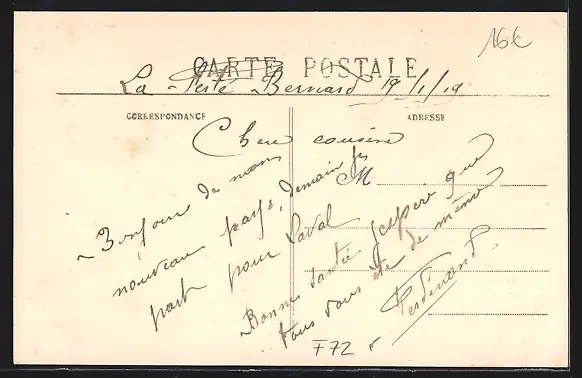 16€
CARTE POSTALE
La Ferté Bernard 19/1/19
CORRESPONDANCE
ADRESSE
Chere cousine
M
Bonjour de mon
nouveau pays, demain je
part pour Laval
Bonne santée j'espere que
tous vous ete de même
Ferdinand
F72